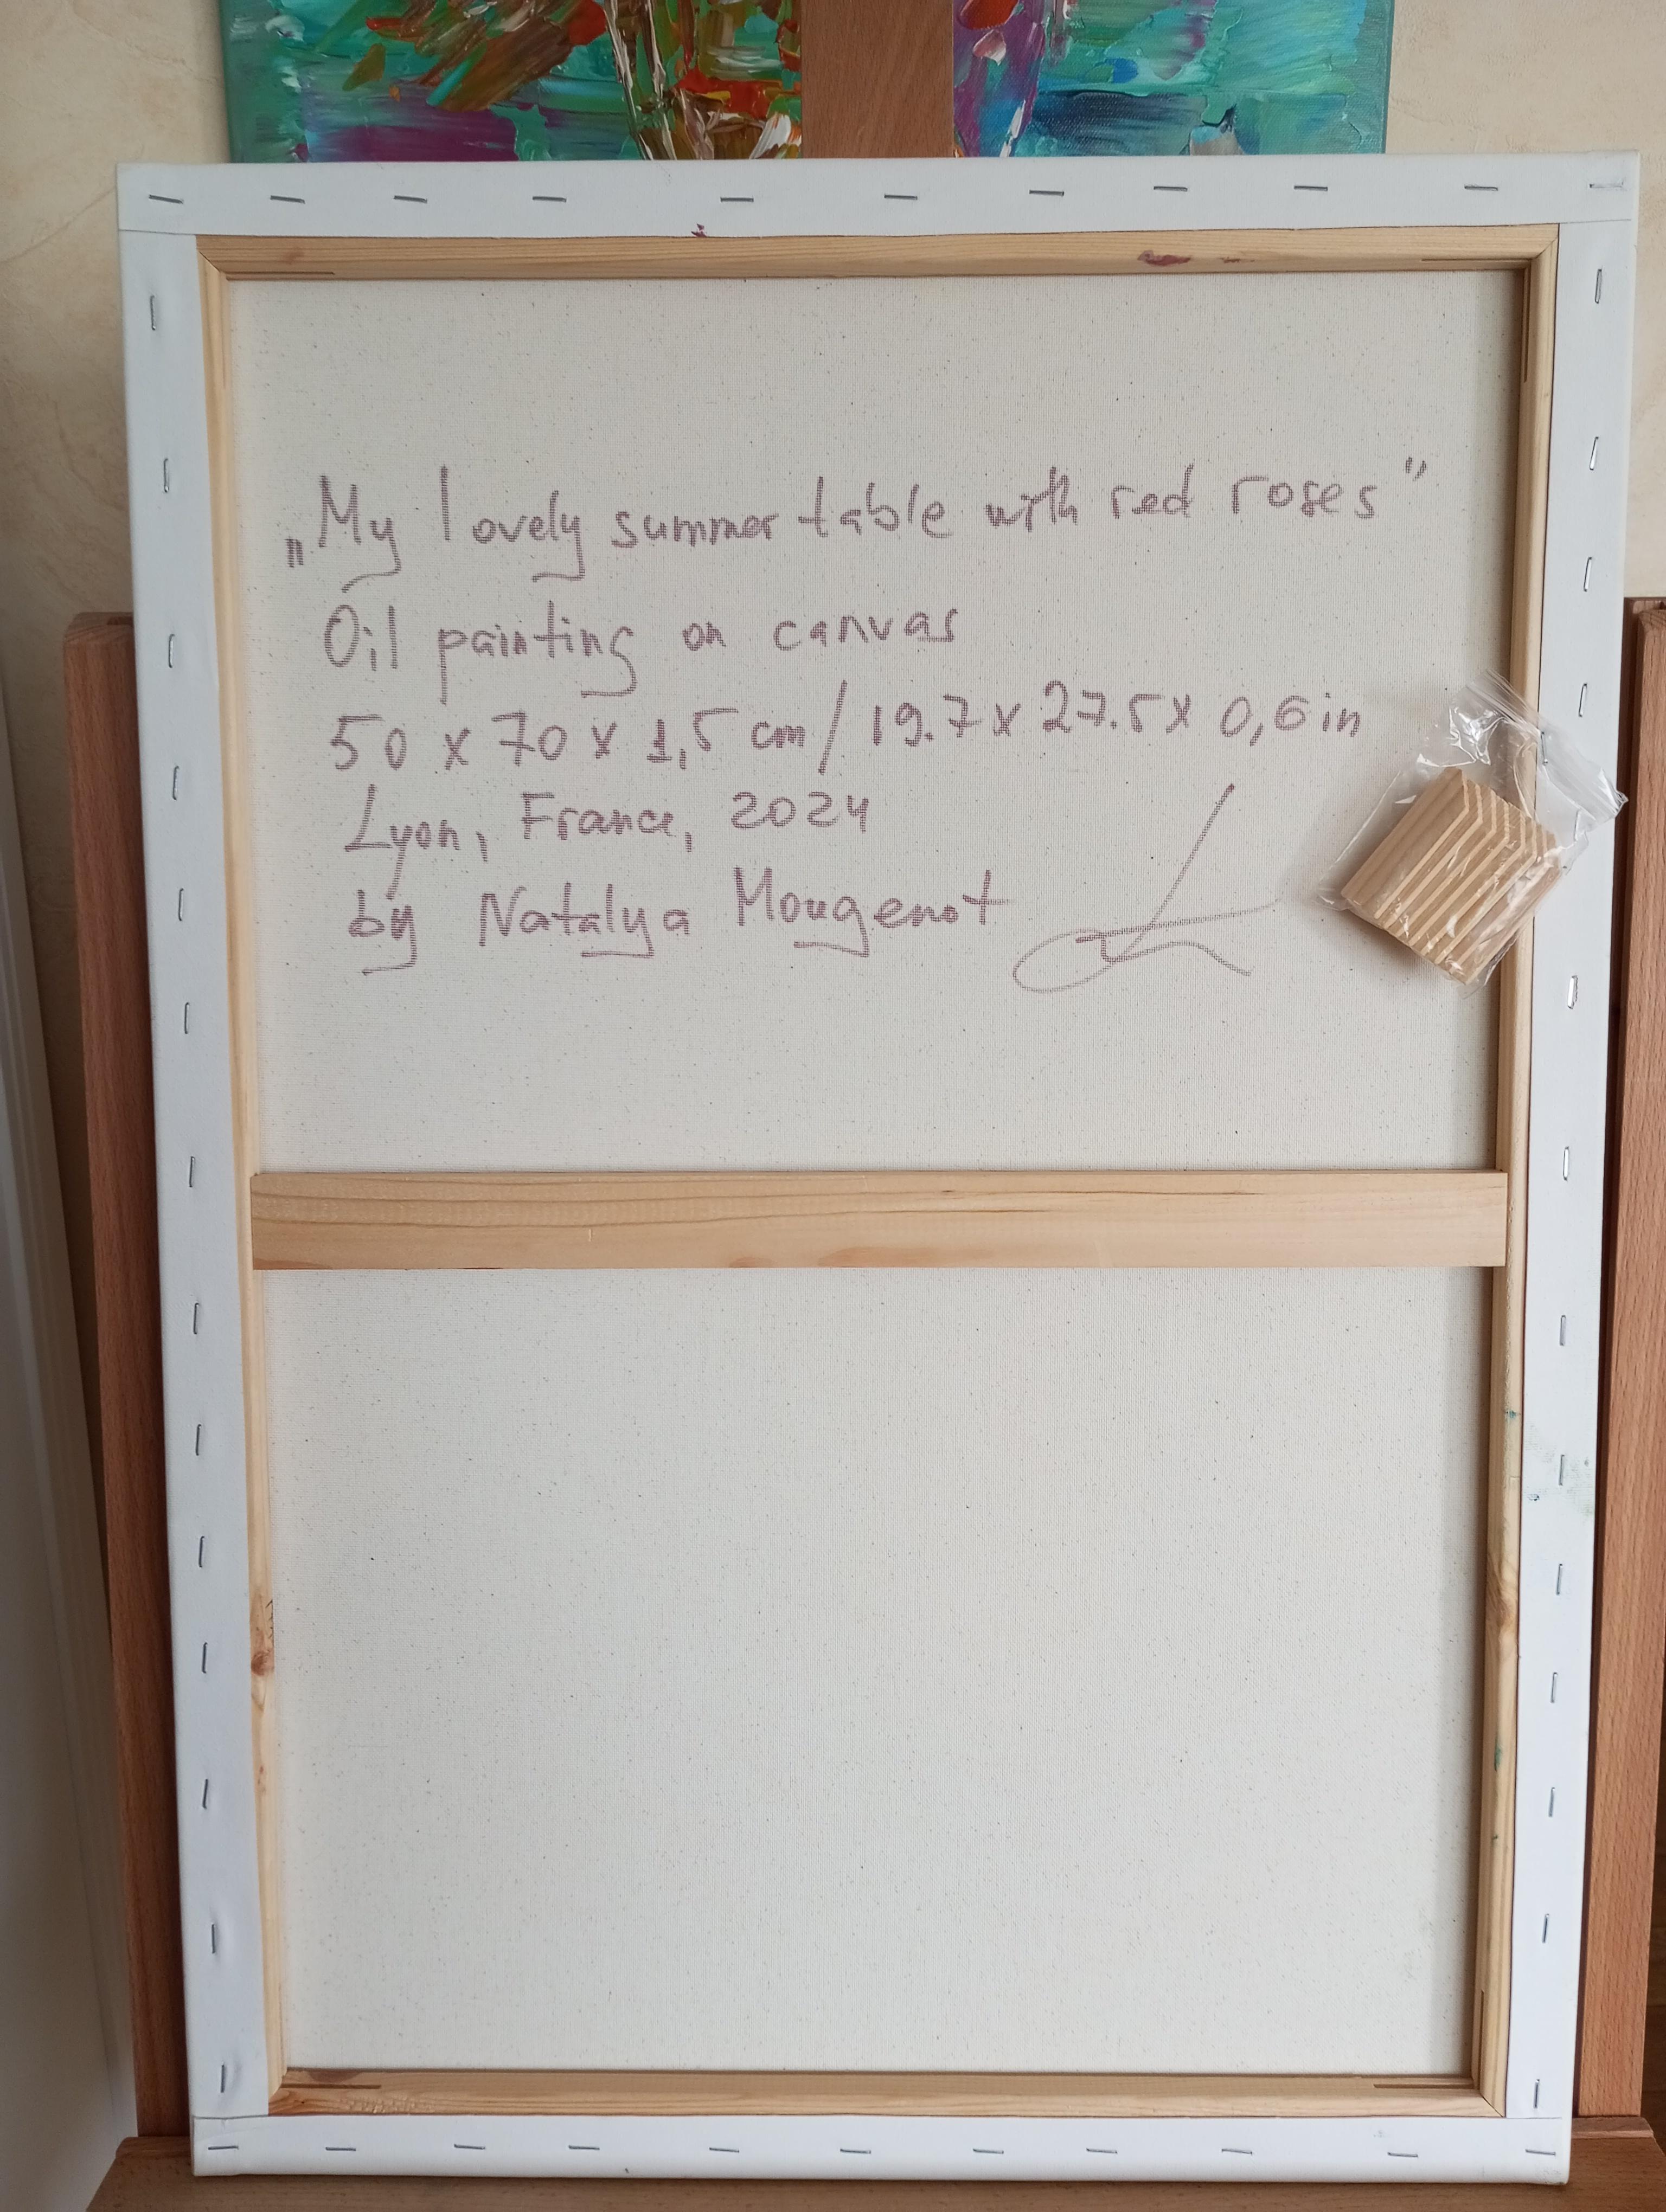 „My lovely summer table with red roses”
Oil painting on canvas
50 x 70 x 1,5 cm / 19.7 x 27.5 x 0,6 in
Lyon, France, 2024
by Natalya Mougenot